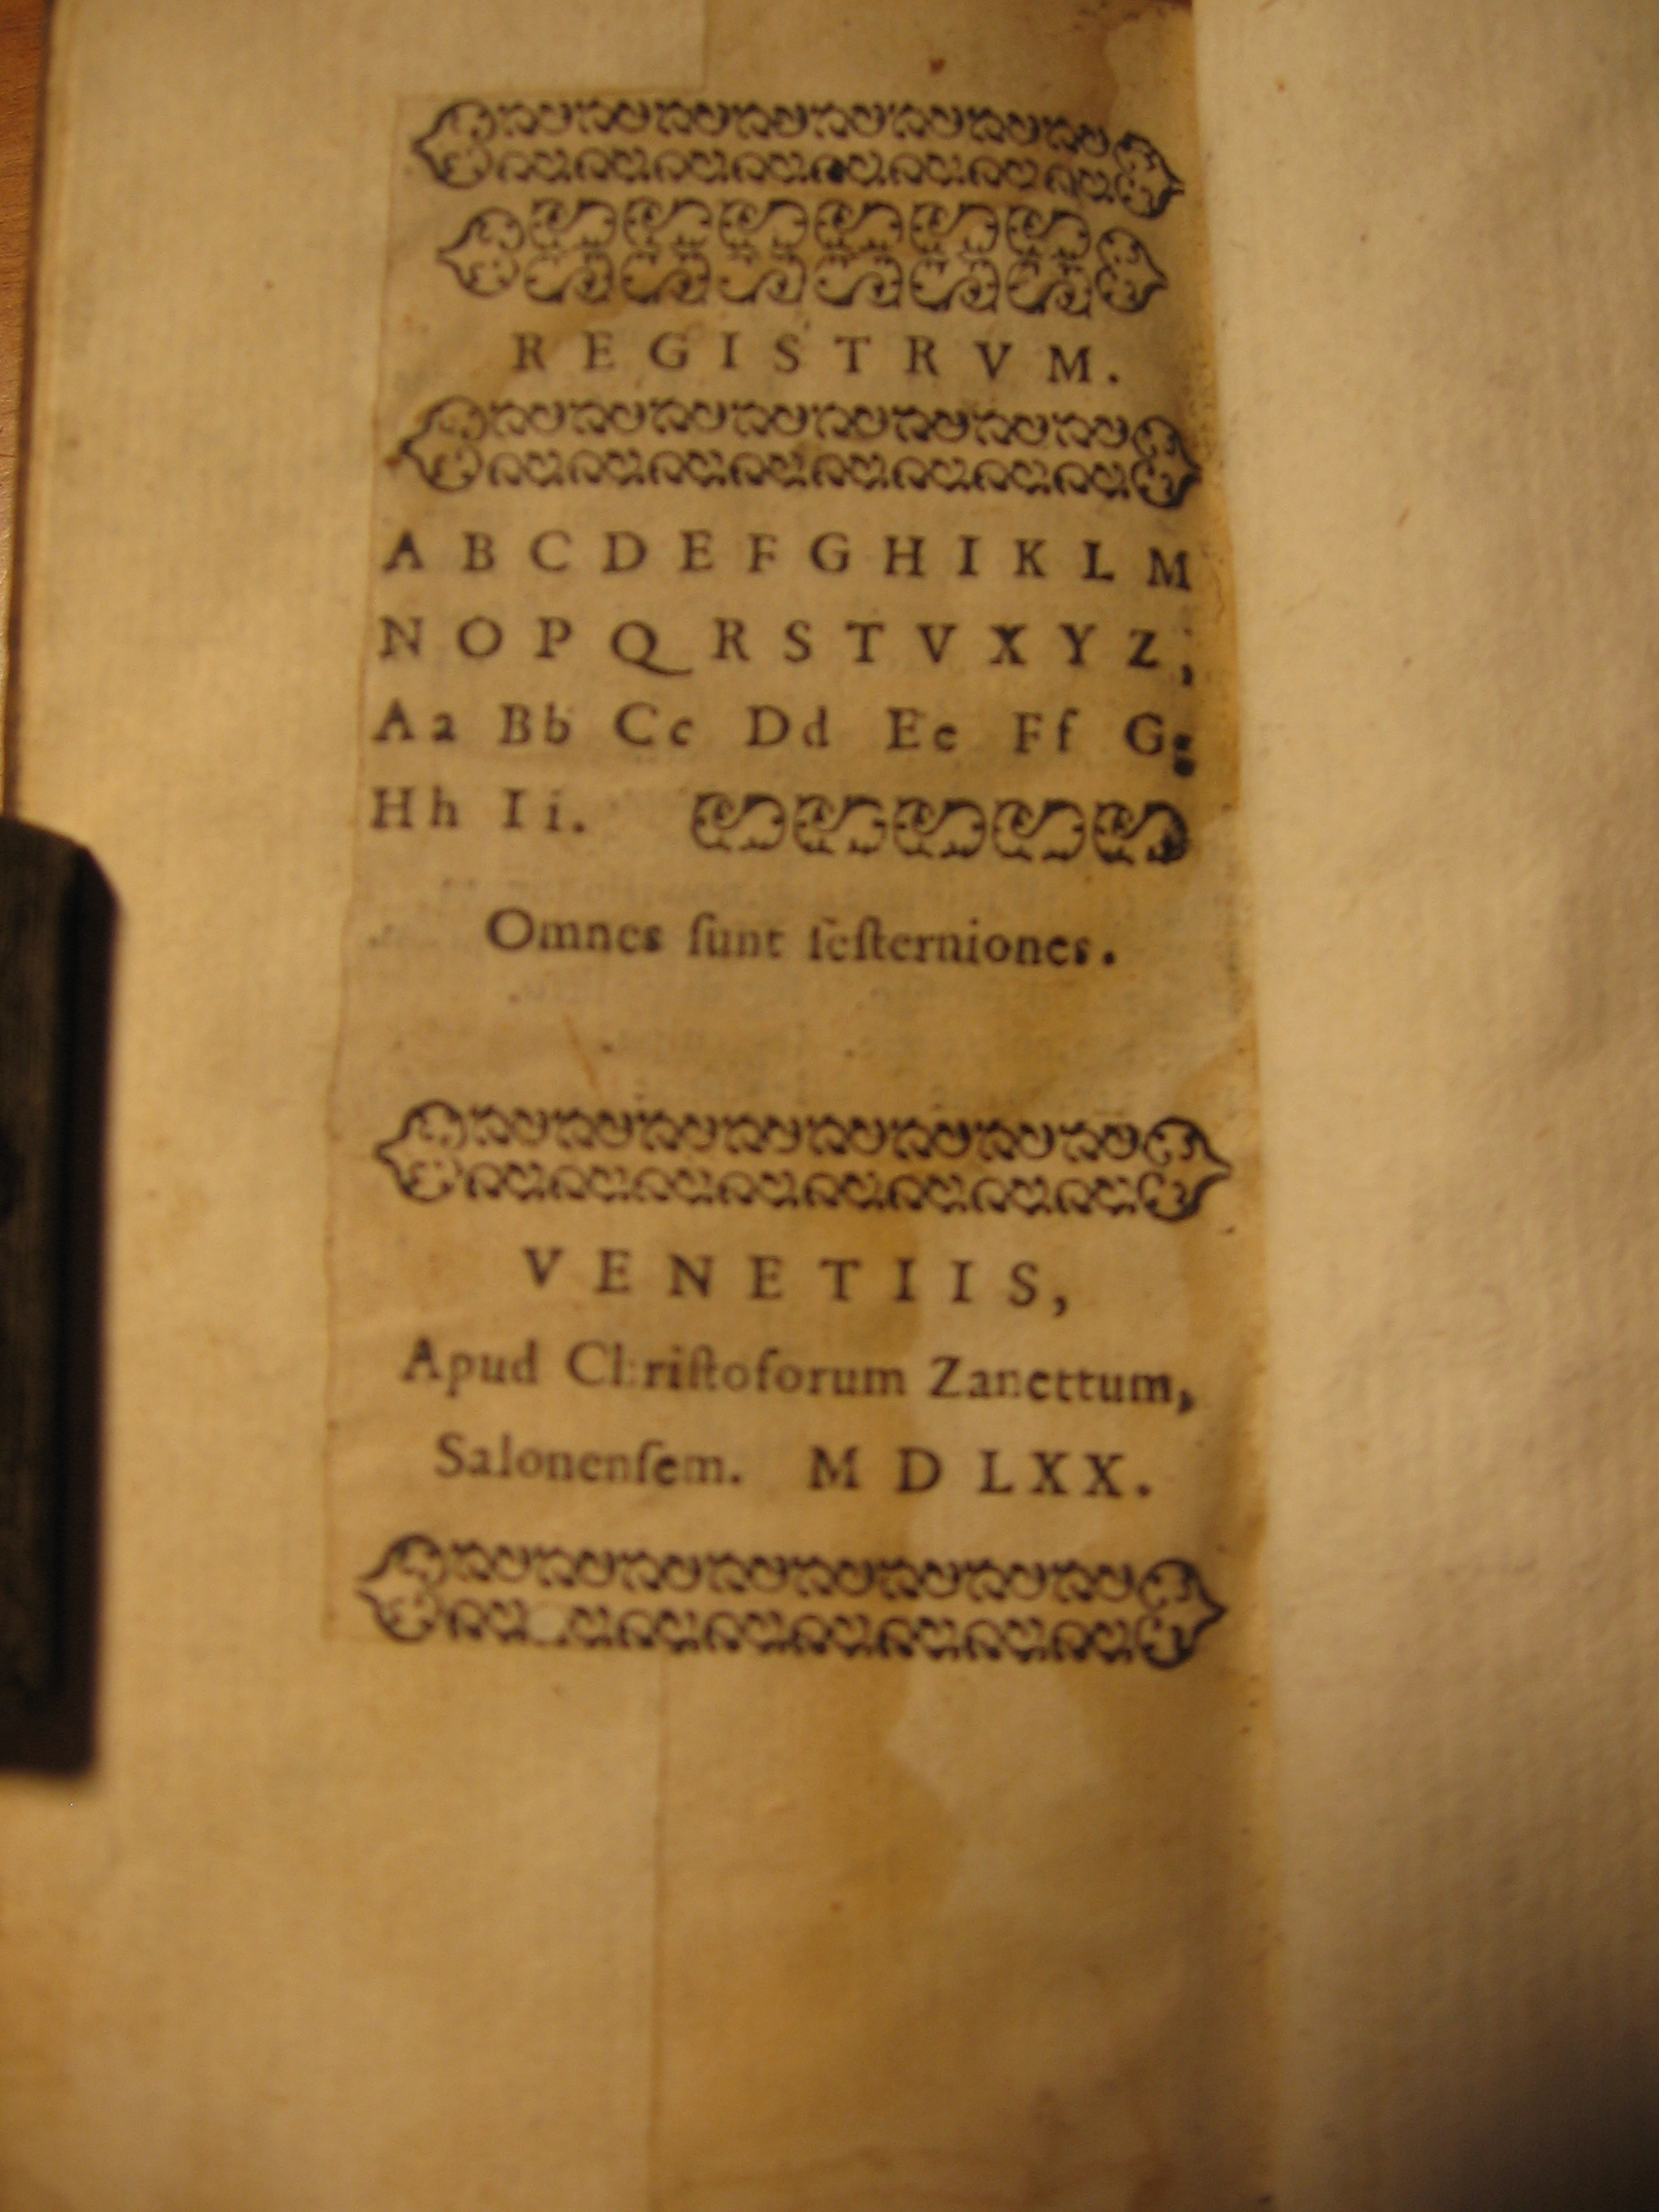 REGISTRVM.
A B C D E F G H I K L M
N O P Q R S T V X Y Z,
Aa Bb Cc Dd Ee Ff Gg
Hh Ii.
Omnes ſunt ſeſterniones.
VENETIIS,
Apud Chriſtoforum Zanettum,
Salonenſem. M D LXX.